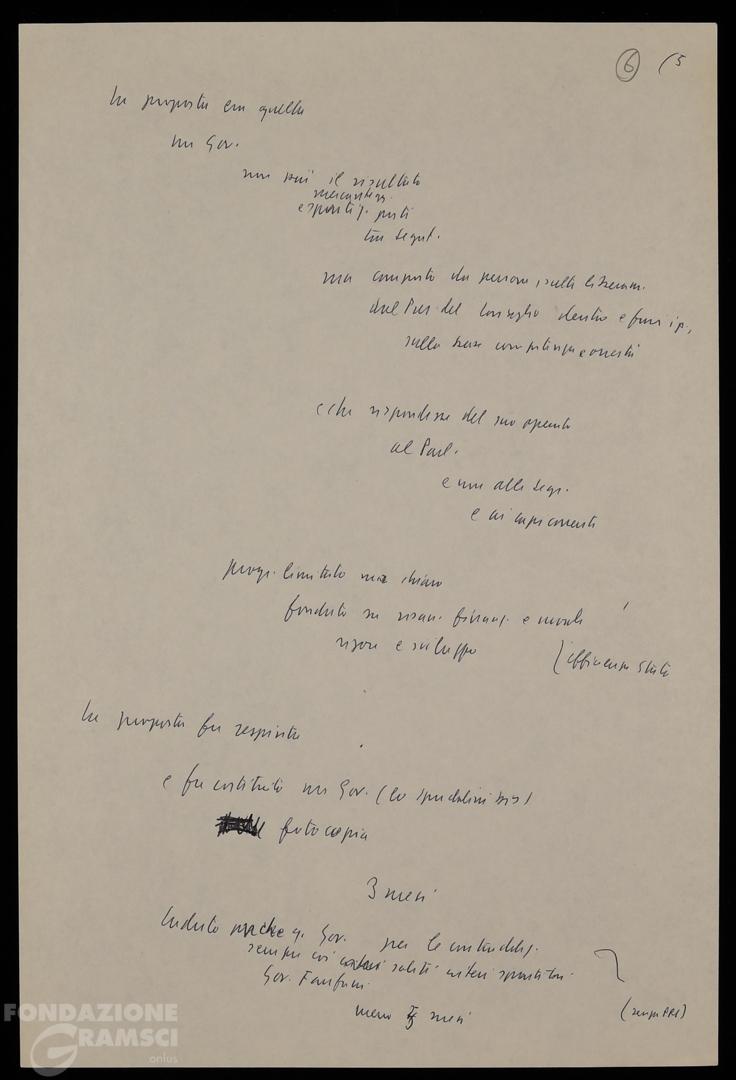 6 (5
La proposta era quella
un Gov.
non più il risultato
mercanteg.
e spartiz. posti
tra segret.
ma composto da persone scelte liberam.
dal Pres. del Consiglio dentro e fuori i p.,
sulla base competenza e onestà
e che rispondesse del suo operato
al Parl.
e non alle segr.
e ai capi correnti
progr. limitato ma chiaro
fondato su risan. finanz. e morale
rigore e sviluppo (efficienza Stato
La proposta fu respinta
e fu costituito un Gov. (lo Spadolini bis)
fotocopia
3 mesi
Caduto anche q. Gov. per le contraddiz.
sempre coi soliti criteri spartitori
Gov. Fanfani
meno 5 mesi (senza PRI)
FONDAZIONE
GRAMSCI
onlus